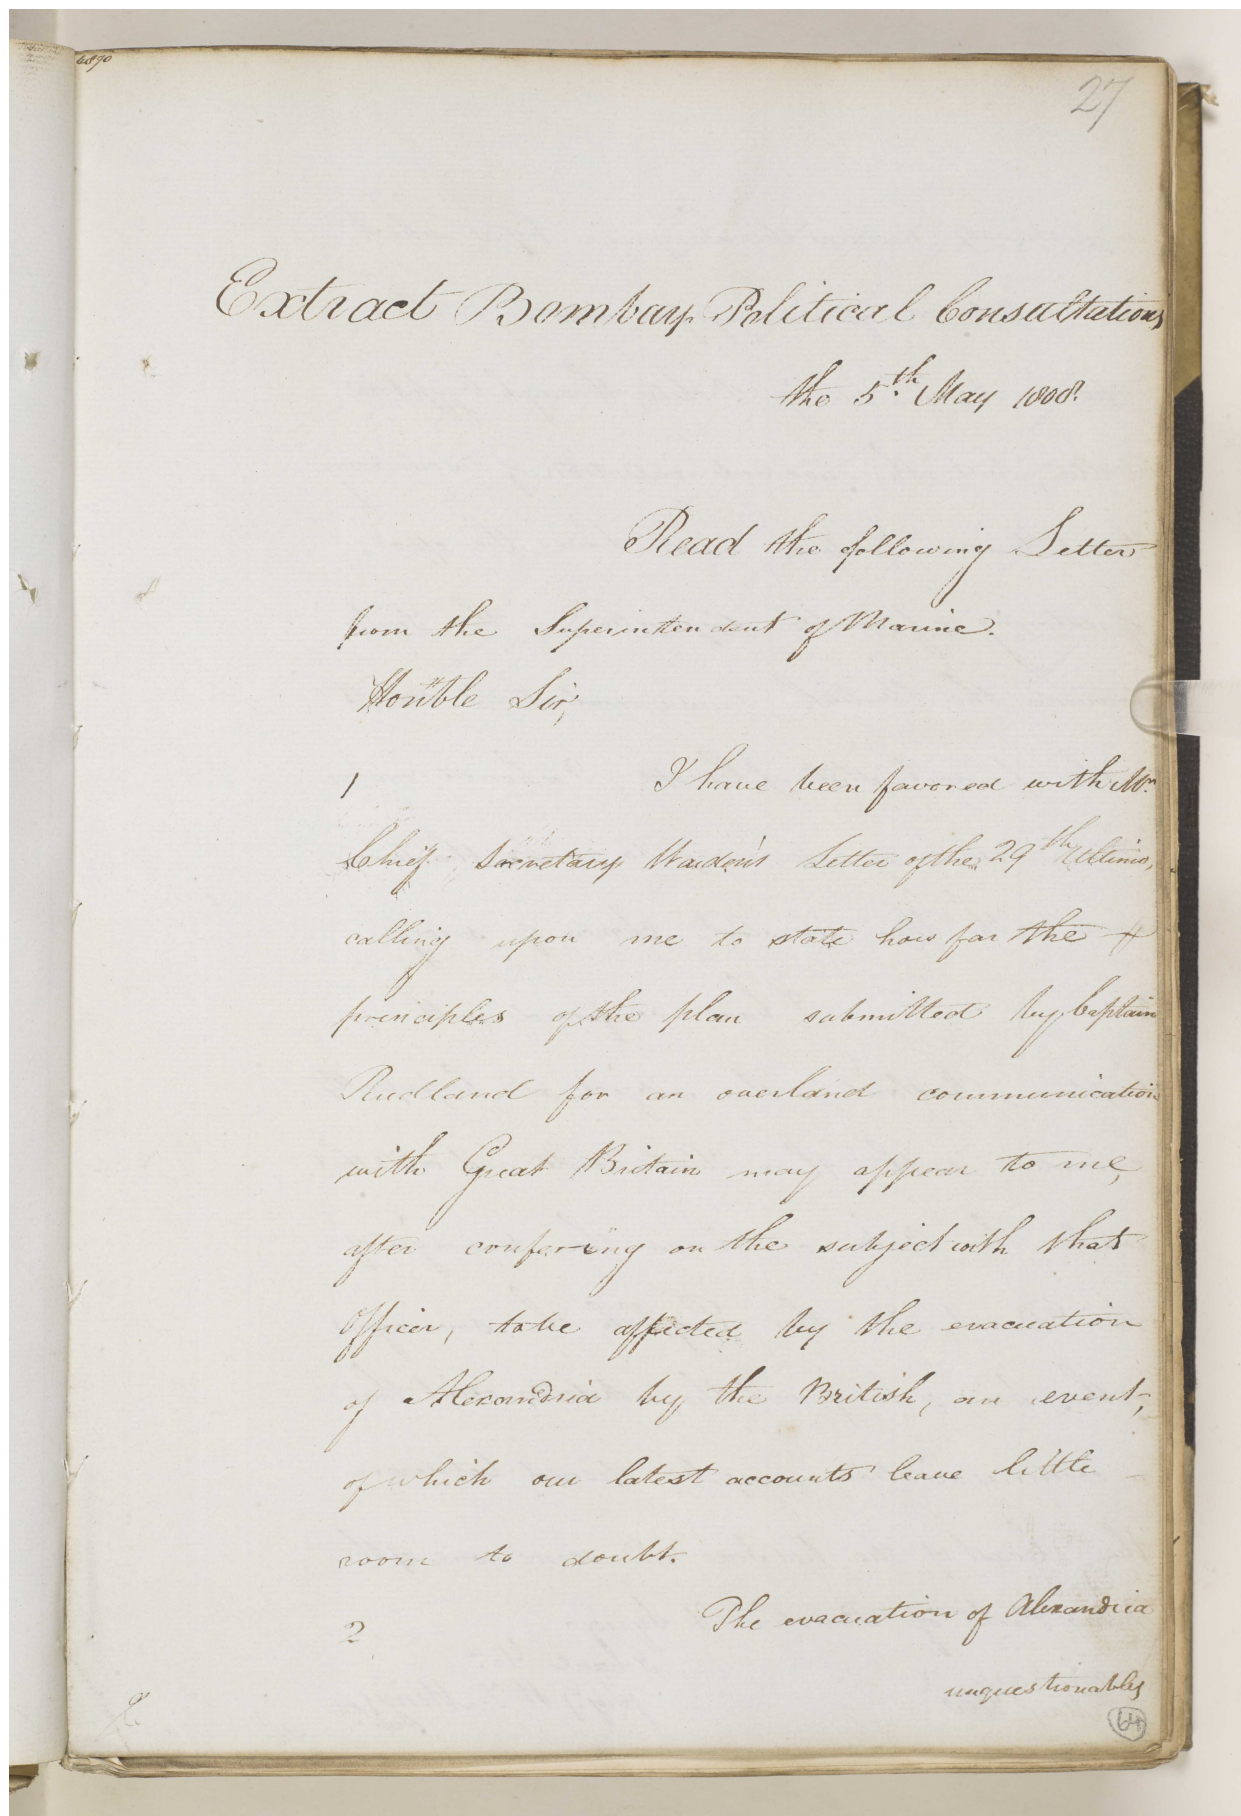 27
Extract Bombay Political Consultations
the 5th May 1808.
Read the following Letter
from the Superintendent of Marine.
Hon'ble Sir,
1 I have been favored with Mr.
Chief Secretary Warden's Letter of the 29th Ultimo,
calling upon me to state how far the
principles of the plan submitted by Captain
Rudland for an overland communication
with Great Britain may appear to me,
after confering on the subject with that
Officer, to be affected by the evacuation
of Alexandria by the British, an event,
of which our latest accounts leave little
room to doubt.
2 The evacuation of Alexandria
unquestionably
64